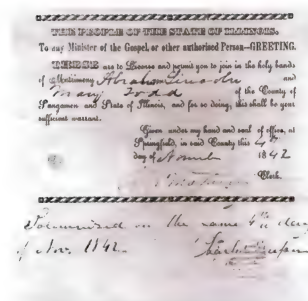 THE PEOPLE OF THE STATE OF ILLINOIS.
To any Minister of the Gospel, or other authorised Person—GREETING.
THESE are to License and permit you to join in the holy bands
of Matrimony Abraham Lincoln and
Mary Todd of the County of
Sangamon and State of Illinois, and for so doing, this shall be your
sufficient warrant.
Given under my hand and seal of office, at
Springfield, in said County this 4th
day of Novemb 1842
Clerk.
Solemnized on the same 4th day
of Nov. 1842. Charles Dresser